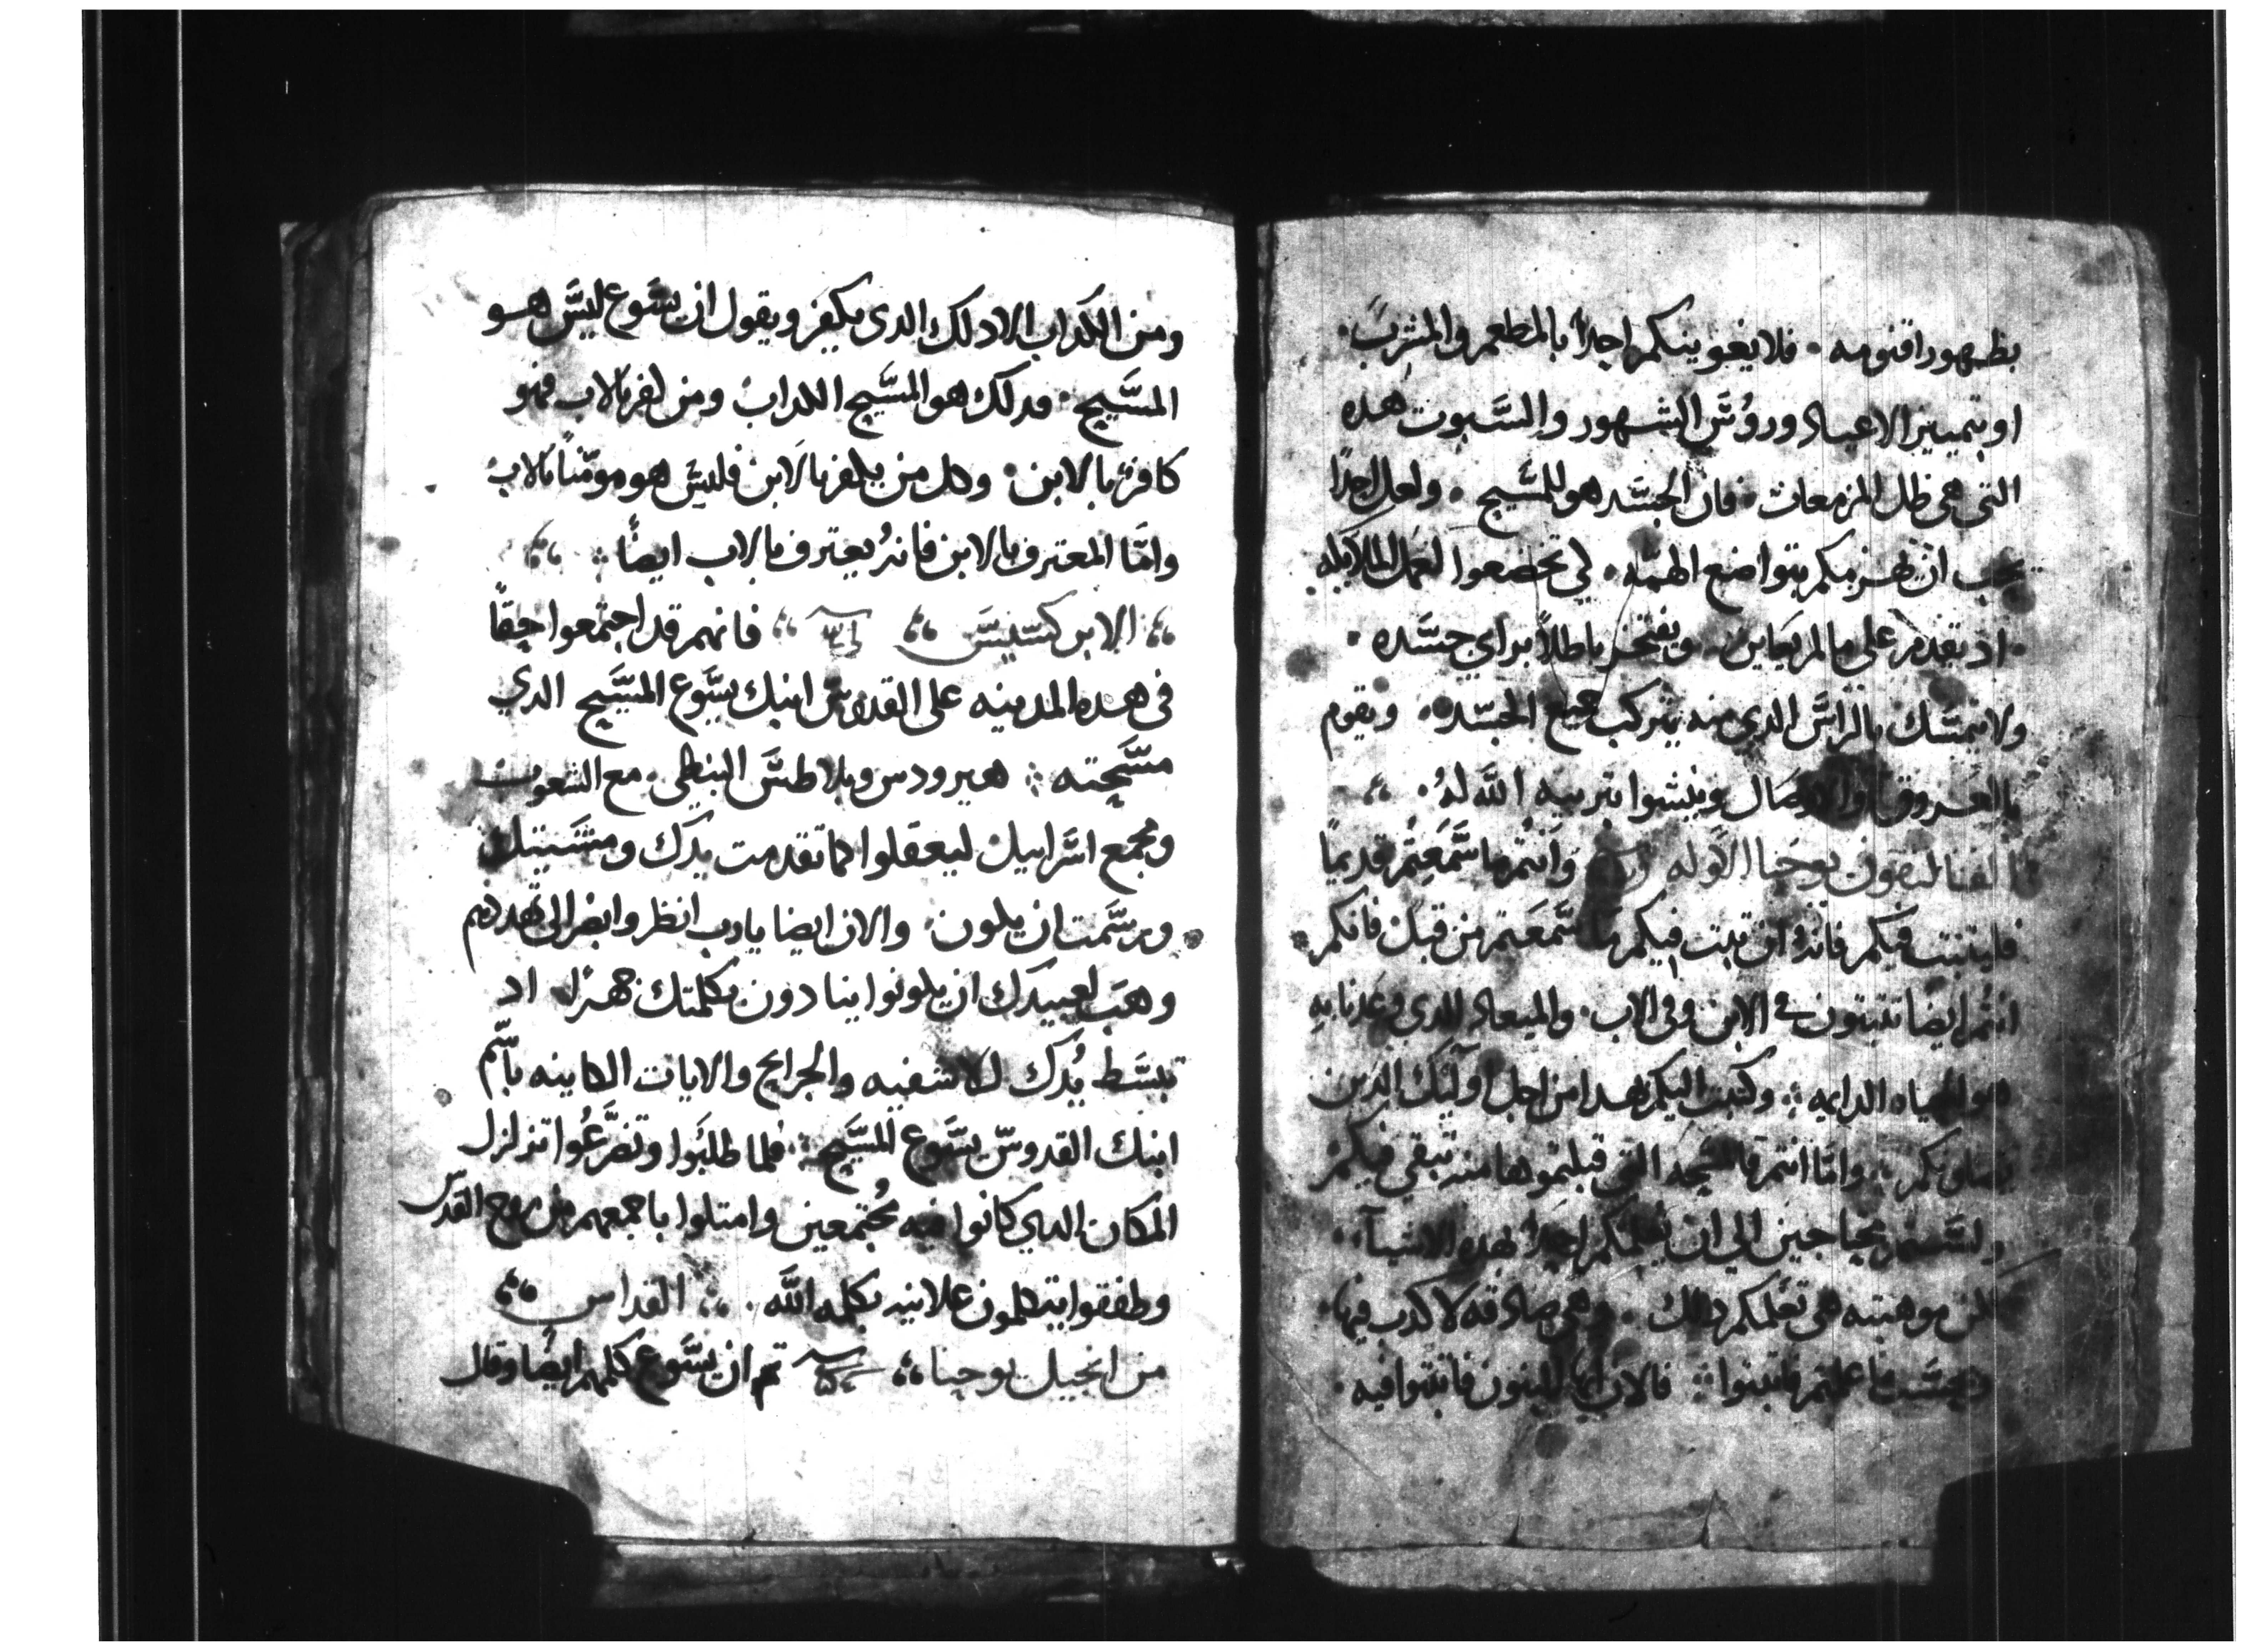 بظهور اقنومه . فلا يغوينكم احداً بالمطعم والمشرب .
او بتمييز الاعياد وروُس الشهور والسبوت هده
التي هى ظل المزمعات . فان الجسد هو للمسيح . ولعل احداً
يحب ان بتواضع الهمه . لكي تخضعوا لعمل الملايكه
. اد يقدم على ما لم يعاين . ويفتخر باطلاً براي جسده .
ولا يتمسك بالراس الدي منه يتركب جميع الجسد . ويقوم
بالعروق والاوصال وينشوا بتربيه الله لهُ .
القتاليقون يوحنا الاوله وانتم ما سمعتم قديماً
فليتبت فيكم فانهُ ان تبت فيكم ما سمعتم من قبل فانكم
انتم ايضا تتبتون فى الابن وفى الاب . والميعاد الدي وعدنا به
هو الحياه الدايمه : وكتبت اليكم بهدا من اجل اوليك الدين
يضلونكم : وامّا انتم فالمسحه التي قبلتموها منه تبقي فيكم
ولستم محتاجين الي ان يُعلمكم احداً بهده الاشيآء .
لكن موهبته هى تعلمكم دالك . وهي صادقه لا كدب فيها .
وبحسب ما علمتم فاتبتوا : فالان ايها البنون فاتبتوا فيه .
ومن الكداب الا دلك الدى يكفر ويقول ان يسوع ليس هو
المسيح . فدلك هو المسيح الكداب ومن كفر بالاب فهو
كافرٌ بالابن . وكل من يكفر بالابن فليس هو مومناً بالاب
وامّا المعترف بالابن فانهُ يعترف بالاب ايضاً :
الابركسيس فانهم قد اجتمعوا حقاً
فى هده المدينه على القدوس ابنك يسوع المسيح الدي
مسحته : هيرودس وبلاطس البنطي . مع الشعوب
ومجمع اسرايل ليعقلوا كما تقدمت يدك ومشيتك
ورسمت ان يكون . والان ايضا يارب انظر وابصر الى تهددهم
وهب لعبيدك ان يكونوا ينادون بكلمتك جهرًا اد
تبسط يُدك للاشفيه والجرايح والايات الكاينه باسم
ابنك القدوس يسوع المسيح : فلما طلبوا وتضرعُوا تزلزل
المكان الدي كانوا فيه مُجتمعين وامتلوا باجمعهم من روح القدس
وطفقوا يتكلمون علانيه بكلمه الله . القداس
من انجيل يوحنا تم ان يسوع كلمهم ايضاً وقال